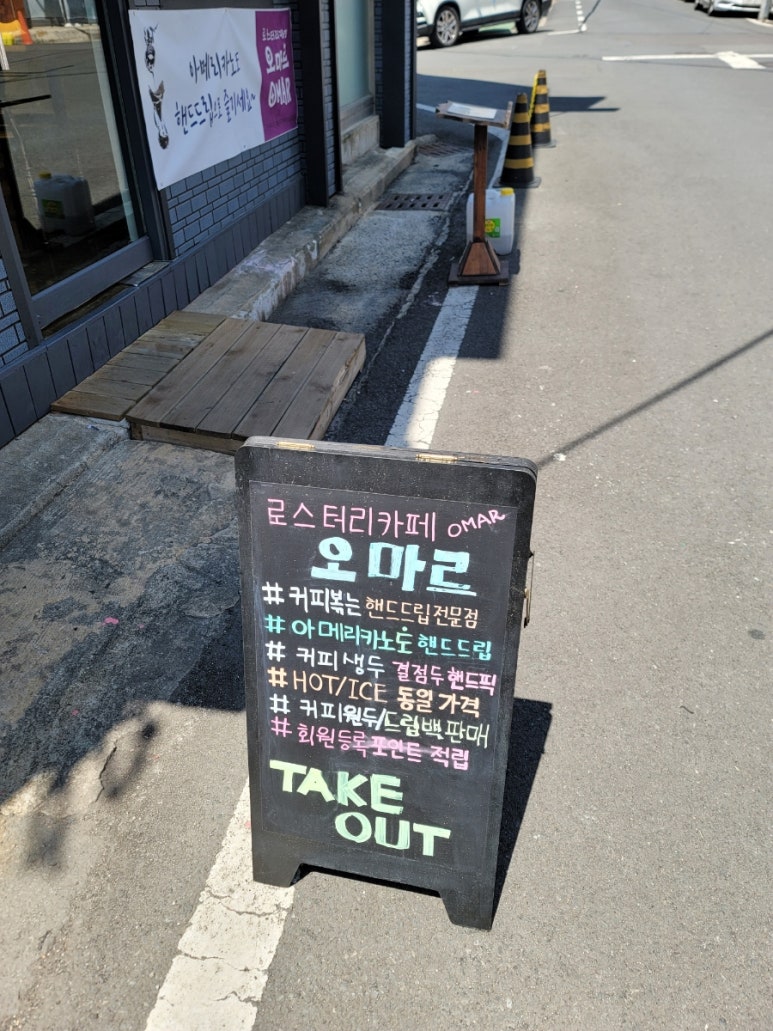 아메리카노도
핸드드립으로 즐기세요~
로스터리카페
오마르
OMAR
로스터리카페 OMAR
오마르
# 커피볶는 핸드드립전문점
# 아메리카노도 핸드드립
# 커피생두 결점두 핸드픽
# HOT/ICE 동일 가격
# 커피원두/드립백판매
# 회원등록 포인트 적립
TAKE
OUT